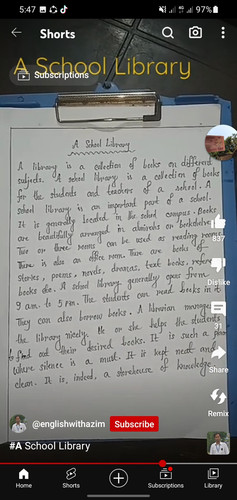 5:47
97%
Shorts
A School Library
Subscriptions
A School Library
A library is a collection of books on different
subjects. A school library is a collection of books
for the students and teachers of a school. A
school library is an important part of a school.
It is generally located in the school campus. Books
are beautifully arranged in almirahs or bookshelves.
Two or three rooms can be used as reading rooms.
There is also an office room. There are books of
stories, poems, novels, dramas, text books, refere
books etc. A school library generally opens from
9 am to 5 pm. The students can read books in it.
They can also borrow books. A librarian manages
the library nicely. He or she helps the students
to find out their desired books. It is such a place
where silence is a must. It is kept neat and
clean. It is, indeed, a storehouse of knowledge.
837
Dislike
31
Share
Remix
@englishwithazim
Subscribe
#A School Library
Home
Shorts
Subscriptions
Library